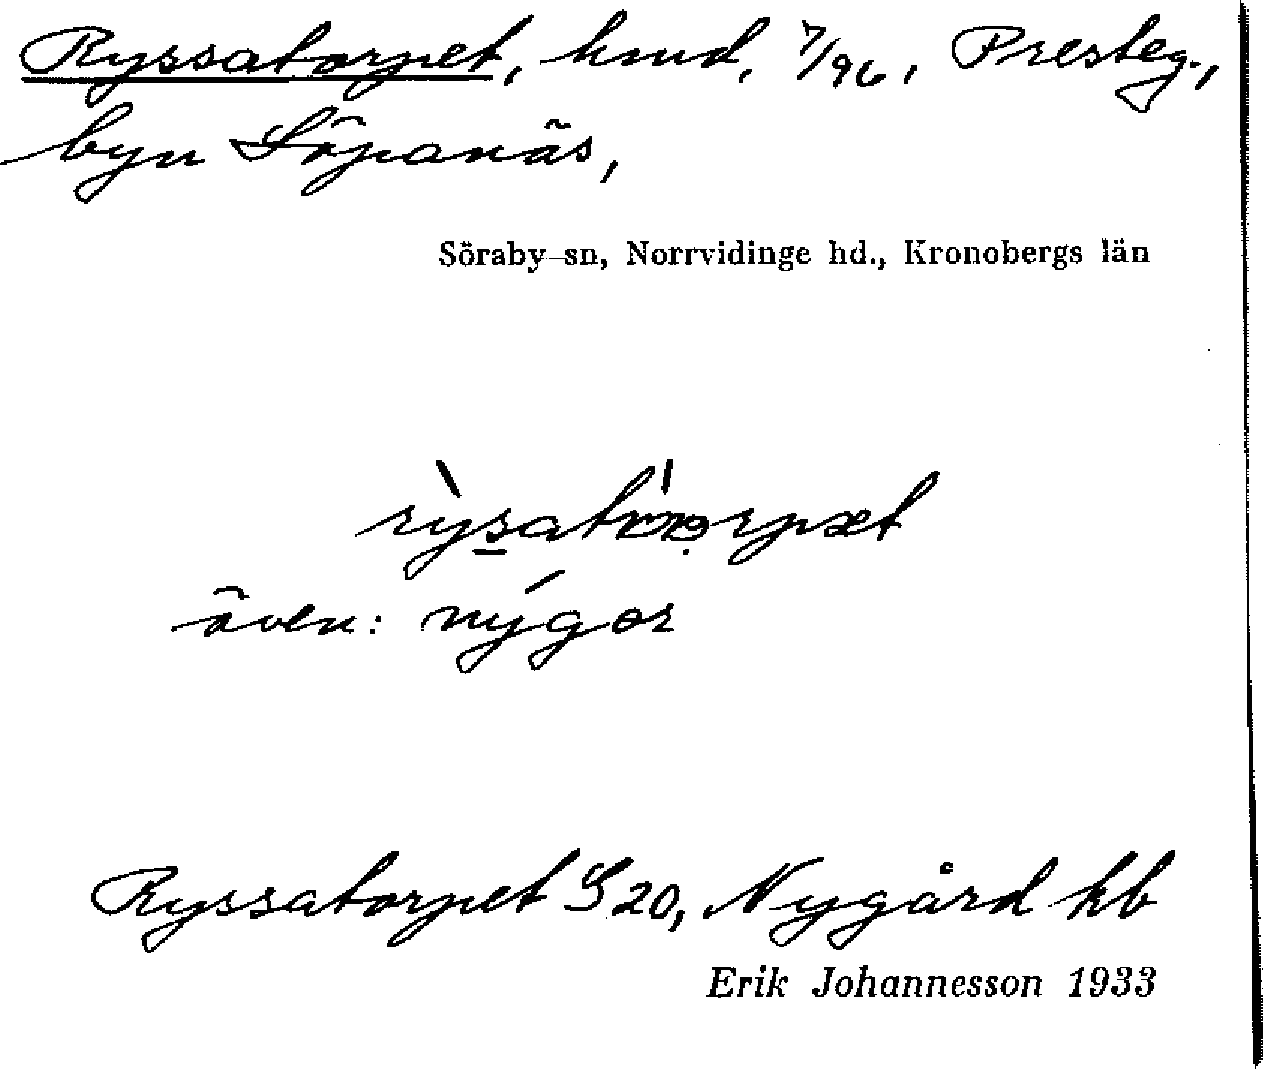 Ryssatorpet, hmd, 7/96, Presteg.,
byn Löpanäs,
Söraby sn, Norrvidinge hd., Kronobergs län
även: nýgor
Ryssatorpet S 20, Nygård kb
Erik Johannesson 1933